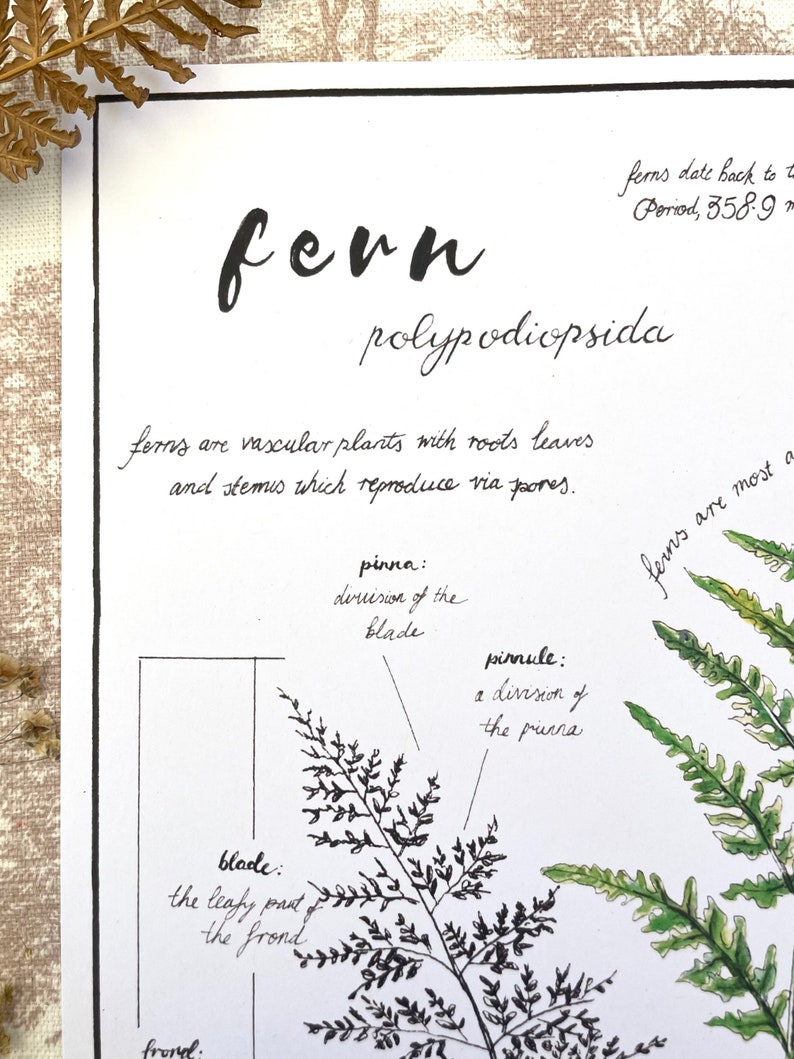 ferns date back to t
Period, 358.9 m
fern
polypodiopsida
ferns are vascular plants with roots leaves
and stems which reproduce via spores.
ferns are most a
pinna:
division of the
blade
pinnule:
a division of
the pinna
blade:
the leafy part of
the frond
frond: